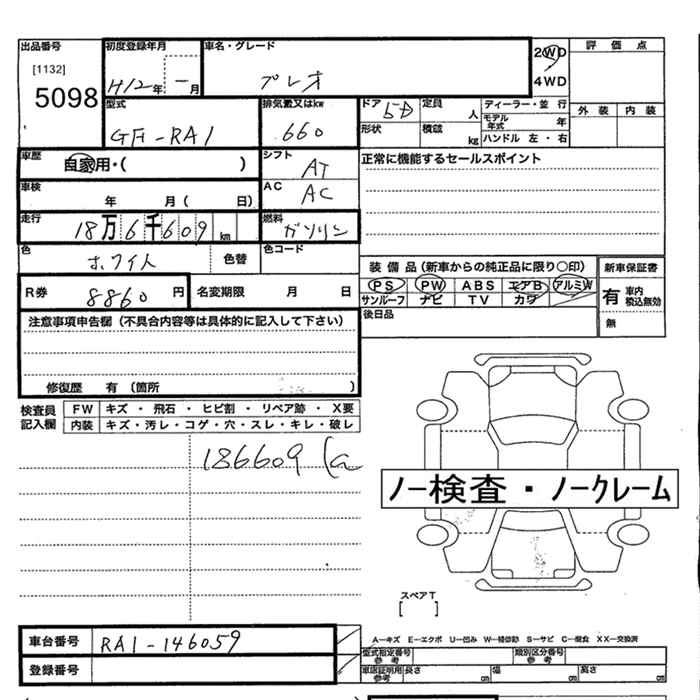 出品番号 初度登録年月 車名・グレード 2WD 評価点
[1132] H12年 一月 プレオ 4WD
5098 型式 排気量又はkw ドア 5D 定員 人 ディーラー・並行 外装 内装
GF-RA1 660 形状 積載 kg モデル年式 年
ハンドル 左・右
車歴 自家用・( ) シフト AT 正常に機能するセールスポイント
車検 年 月( 日) AC AC
走行 18万6千609 km 燃料 ガソリン
色 ホワイト 色替 色コード
装備品(新車からの純正品に限り○印) 新車保証書
PS PW ABS エアB アルミW 有 車内税込無効
R券 8860円 名変期限 月 日 サンルーフ ナビ TV カワ
後日品 無
注意事項申告欄(不具合内容等は具体的に記入して下さい)
修復歴 有(箇所 )
検査員記入欄 FW キズ・飛石・ヒビ割・リペア跡・X要
内装 キズ・汚レ・コゲ・穴・スレ・キレ・破レ
186609
ノー検査・ノークレーム
スペアT
[ ]
車台番号 RA1-146059 A-キズ E-エクボ U-凹み W-補修跡 S-サビ C-腐食 XX-交換済
型式指定番号 参考 類別区分番号 参考
登録番号 車庫証明用 参考 長さ cm 幅 cm 高さ cm